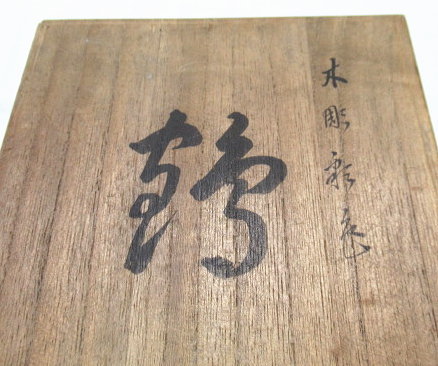 木彫彩色
鶴